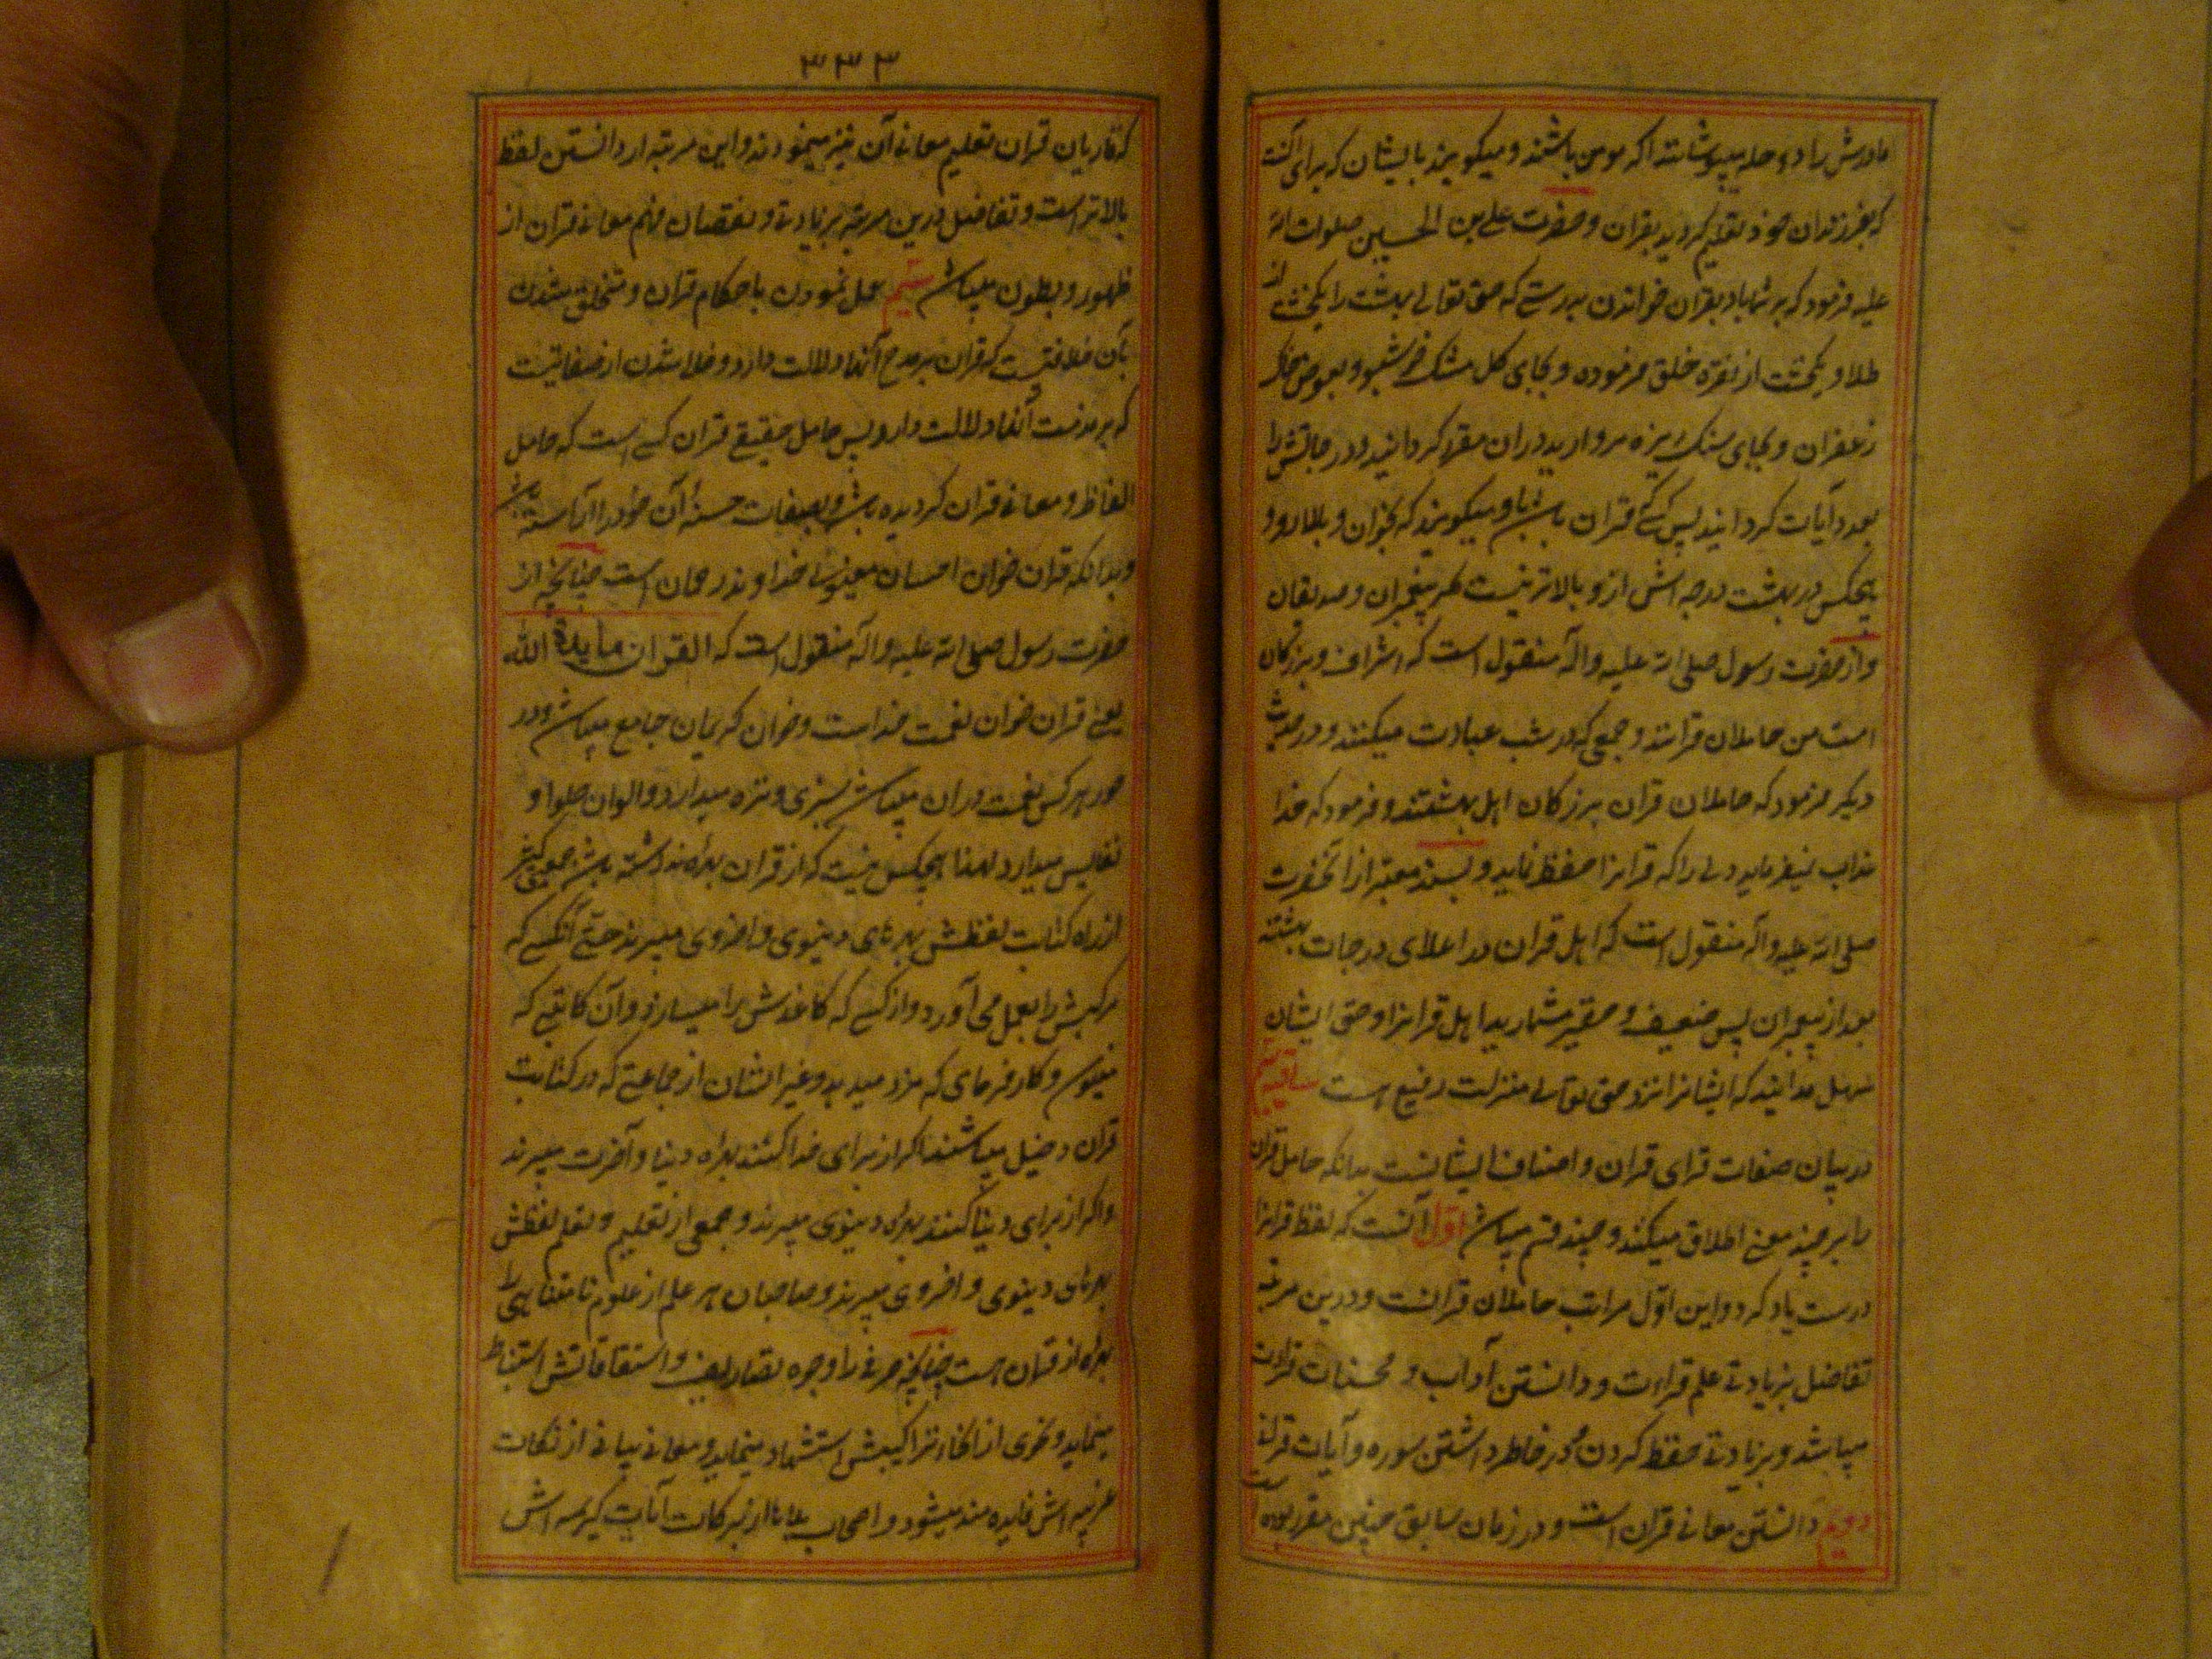 مادرش را دو حله میپوشانند اکر مومن باشند و میکویند بایشان که برای آنست
که بفرزندان خود تعلیم کردید بقران و حضرت علی بن الحسین صلوات الله
علیه فرمود که بر شما باد بقران خواندن بدرستی که حق تعالی بهشت را یکخشت از
طلا و یکخشت از نقره خلق فرموده و بجای کل مشک خوشبو و بعوض خاک
زعفران و بجای سنک ریزه مروارید دران مقرر کردانید و درجاتش را
بعدد آیات کردانید پس کسی که قران با او میکویند که بخوان و بالا رو و
هیچکس در بهشت درجه اش از و بالاتر نیست مکر پیغمبران و صدیقان
و از حضرت رسول صلی الله علیه و اله منقول است که اشراف و بزرکان
امت من حاملان قرانند و جمعی که در شب عبادت میکنند و در حدیث
دیکر فرمود که حاملان قران بزرکان اهل بهشتند و فرمود که خدا
عذاب نمیفرماید دلی را که قرانرا حفظ نماید و بسند معتبر از انحضرت
صلی الله علیه و اله منقول است که اهل قران در اعلای درجات بهشتند
بعد از پیغمبران پس ضعیف و حقیر مشمارید اهل قرانرا و حق ایشان
سهل مدانید که ایشانرا نزد حق تعالی منزلت رفیع هست ساقیه
در بیان صفات قرای قران و اصناف ایشانست بدانکه حامل قران
را بر چند معنی اطلاق میکنند و چند قسم میباشد اول آنست که لفظ قرانرا
درست یاد کرد و این اول مراتب حاملان قرانست و درین مرتبه
تفاضل بزیادتی علم قراءت و دانستن آداب و محسنات قراءت
میباشد و بزیادتی حفظ کردن و در خاطر داشتن سوره و آیات قران
دویم دانستن معانی قران است و در زمان سابق چنین مقرر بوده است
۳۳۳
که قاریان قران تعلیم معانی آن نیز مینمودند و این مرتبه از دانستن لفظ
بالاتر است و تفاضل درین مرتبه بزیادتی و نقصان فهم معانی قران از
ظهور و بطون میباشد سیم عمل نمودن باحکام قران و متخلق شدن
بآن خلاقیست که قران بر مدح آنها دلالت دارد و خلا شدن از صفاتیست
که بر مذمت آنها دلالت دارد پس حامل حقیقی قران کسی است که حامل
الفاظ و معانی قران کردیده باشد و بصفات حسنهٔ آن خود را آراسته باشد
و بدانکه قران خوان احسان خداوند رحمان است چنانچه از
حضرت رسول صلی الله علیه و اله منقول است که القران مایدة الله
یعنی قران خوان نعمت خداست و خوان کریمان جامع میباشد و در
خور هر کس نعمت دران میباشد سبزی و تره میدارد و الوان حلوا و
نفایس میدارد لهذا هیچکس نیست که از قران بهره نداشته باشد جمعی کثیر
از راه کتابت لفظش بهرهای دینوی و اخروی میبرند حتی آنکسی که
مرکبش را بعمل می آورد و از کسی که کاغذش را میسازد و آن کاتبی که
مینویسد و کارفرمای که مزد میدهد و غیر ایشان از جماعتی که در کتابت
قران دخیل میباشند اکر از برای خدا کنند بهره دینا و آخرت میبرند
و اکر از برای دینا کنند بهره دینوی میبرند و جمعی از تعلیم و تعلم لفظش
بهرهای دینوی و اخروی میبرند و صاحبان هر علم از علوم نا متناهی را
بهره از قران هست چنانچه صرفی را وجوه تصاریف و اشتقاقاتش استنباط
مینماید و نحوی از انحاء تراکیبش استشهاد مینماید و معانی بیانی از نکات
غریبه اش فایده مند میشود و اصحاب بلاها از برکات آیات کریمه اش